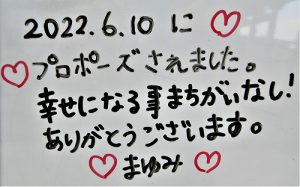 2022.6.10 に
プロポーズされました。
幸せになる事まちがいなし!
ありがとうございます。
まゆみ